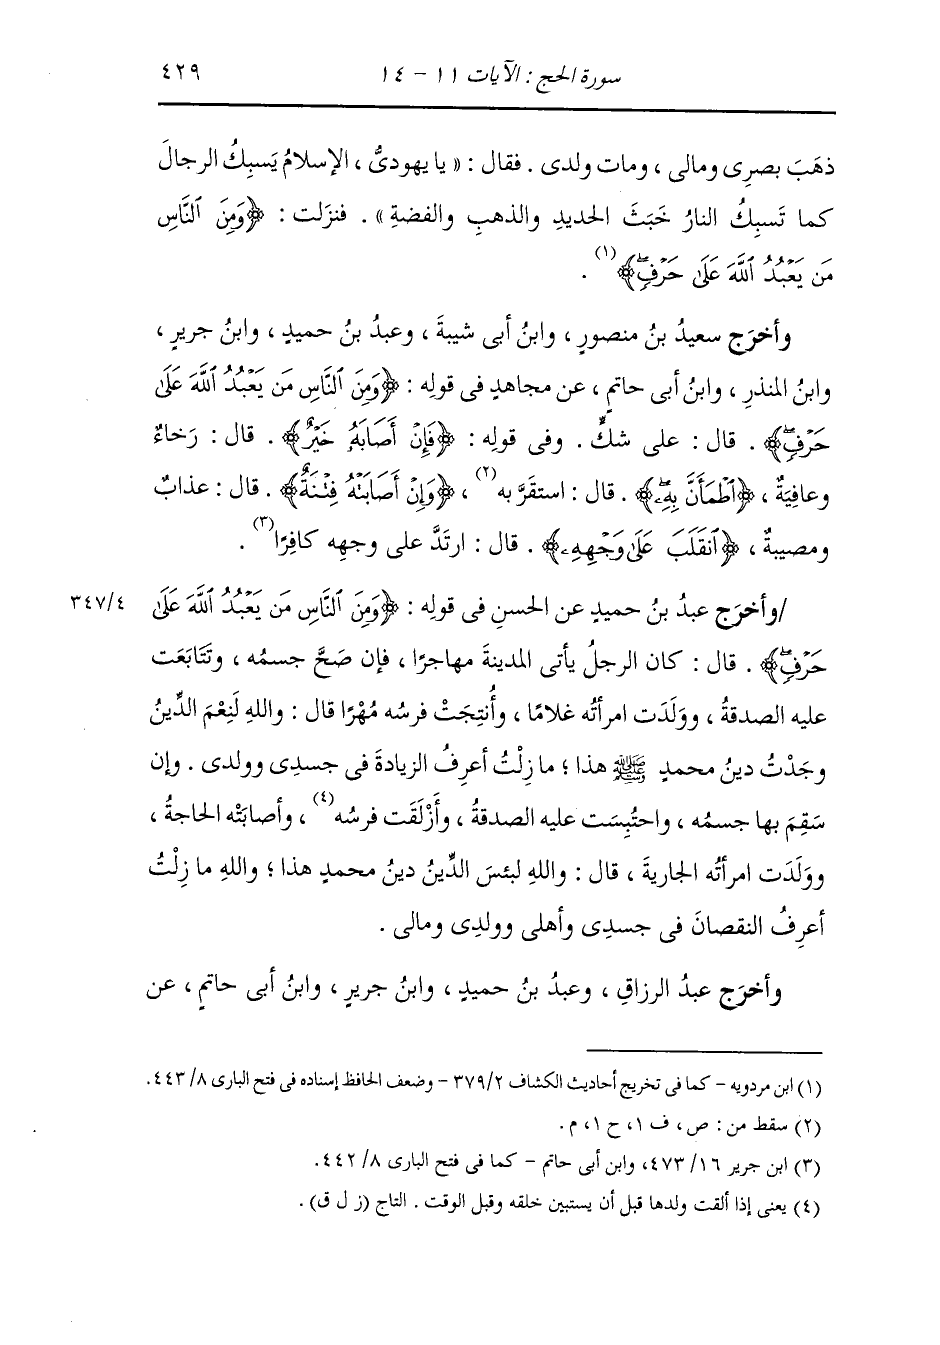 سورة الحج : الآيات ١١ - ١٤ ٤٢٩
ذهَبَ بصرِى ومالى ، ومات ولدى . فقال : « يا يهودىُّ ، الإسلامُ يَسبِكُ الرجالَ
كما تَسبِكُ النارُ خَبَثَ الحديدِ والذهبِ والفضةِ » . فنزَلت : ﴿وَمِنَ ٱلنَّاسِ
مَن يَعۡبُدُ ٱللَّهَ عَلَىٰ حَرۡفٖۖ﴾(١) .
وأخرَج سعيدُ بنُ منصورٍ ، وابنُ أبى شيبةَ ، وعبدُ بنُ حميدٍ ، وابنُ جريرٍ ،
وابنُ المنذرِ ، وابنُ أبى حاتمٍ ، عن مجاهدٍ فى قولِه : ﴿وَمِنَ ٱلنَّاسِ مَن يَعۡبُدُ ٱللَّهَ عَلَىٰ
حَرۡفٖۖ﴾ . قال : على شكٍّ . وفى قولِه : ﴿فَإِنۡ أَصَابَهُۥ خَيۡرٌ﴾ . قال : رَخاءٌ
وعافِيَةٌ ، ﴿ٱطۡمَأَنَّ بِهِۦۖ﴾ . قال : استقرَّ به(٢) ، ﴿وَإِنۡ أَصَابَتۡهُ فِتۡنَةٌ﴾ . قال : عذابٌ
ومصيبةٌ ، ﴿ٱنقَلَبَ عَلَىٰ وَجۡهِهِۦ﴾ . قال : ارتَدَّ على وجهِه كافِرًا(٣) .
/وأخرَج عبدُ بنُ حميدٍ عن الحسنِ فى قولِه : ﴿وَمِنَ ٱلنَّاسِ مَن يَعۡبُدُ ٱللَّهَ عَلَىٰ ٣٤٧/٤
حَرۡفٖۖ﴾ . قال : كان الرجلُ يأتى المدينةَ مهاجرًا ، فإن صَحَّ جسمُه ، وتَتَابَعَت
عليه الصدقةُ ، ووَلَدَت امرأتُه غلامًا ، وأُنتِجَتْ فرسُه مُهْرًا قال : واللهِ لَنِعْمَ الدِّينُ
وجَدْتُ دينُ محمدٍ ﷺ هذا ؛ ما زِلْتُ أعرِفُ الزيادةَ فى جسدِى وولدى . وإن
سَقِمَ بها جسمُه ، واحتُبِسَت عليه الصدقةُ ، وأَزْلَقَت فرسُه(٤) ، وأصابَتْه الحاجةُ ،
ووَلَدَت امرأتُه الجاريةَ ، قال : واللهِ لبئسَ الدِّينُ دينُ محمدٍ هذا ؛ واللهِ ما زِلْتُ
أعرِفُ النقصانَ فى جسدِى وأهلى وولدِى ومالى .
وأخرَج عبدُ الرزاقِ ، وعبدُ بنُ حميدٍ ، وابنُ جريرٍ ، وابنُ أبى حاتمٍ ، عن
(١) ابن مردويه - كما فى تخريج أحاديث الكشاف ٣٧٩/٢ - وضعف الحافظ إسناده فى فتح البارى ٤٤٣/٨.
(٢) سقط من : ص، ف ١، ح ١، م.
(٣) ابن جرير ٤٧٣/١٦، وابن أبى حاتم - كما فى فتح البارى ٤٤٢/٨.
(٤) يعنى إذا ألقت ولدها قبل أن يستبين خلقه وقبل الوقت . التاج (ز ل ق) .